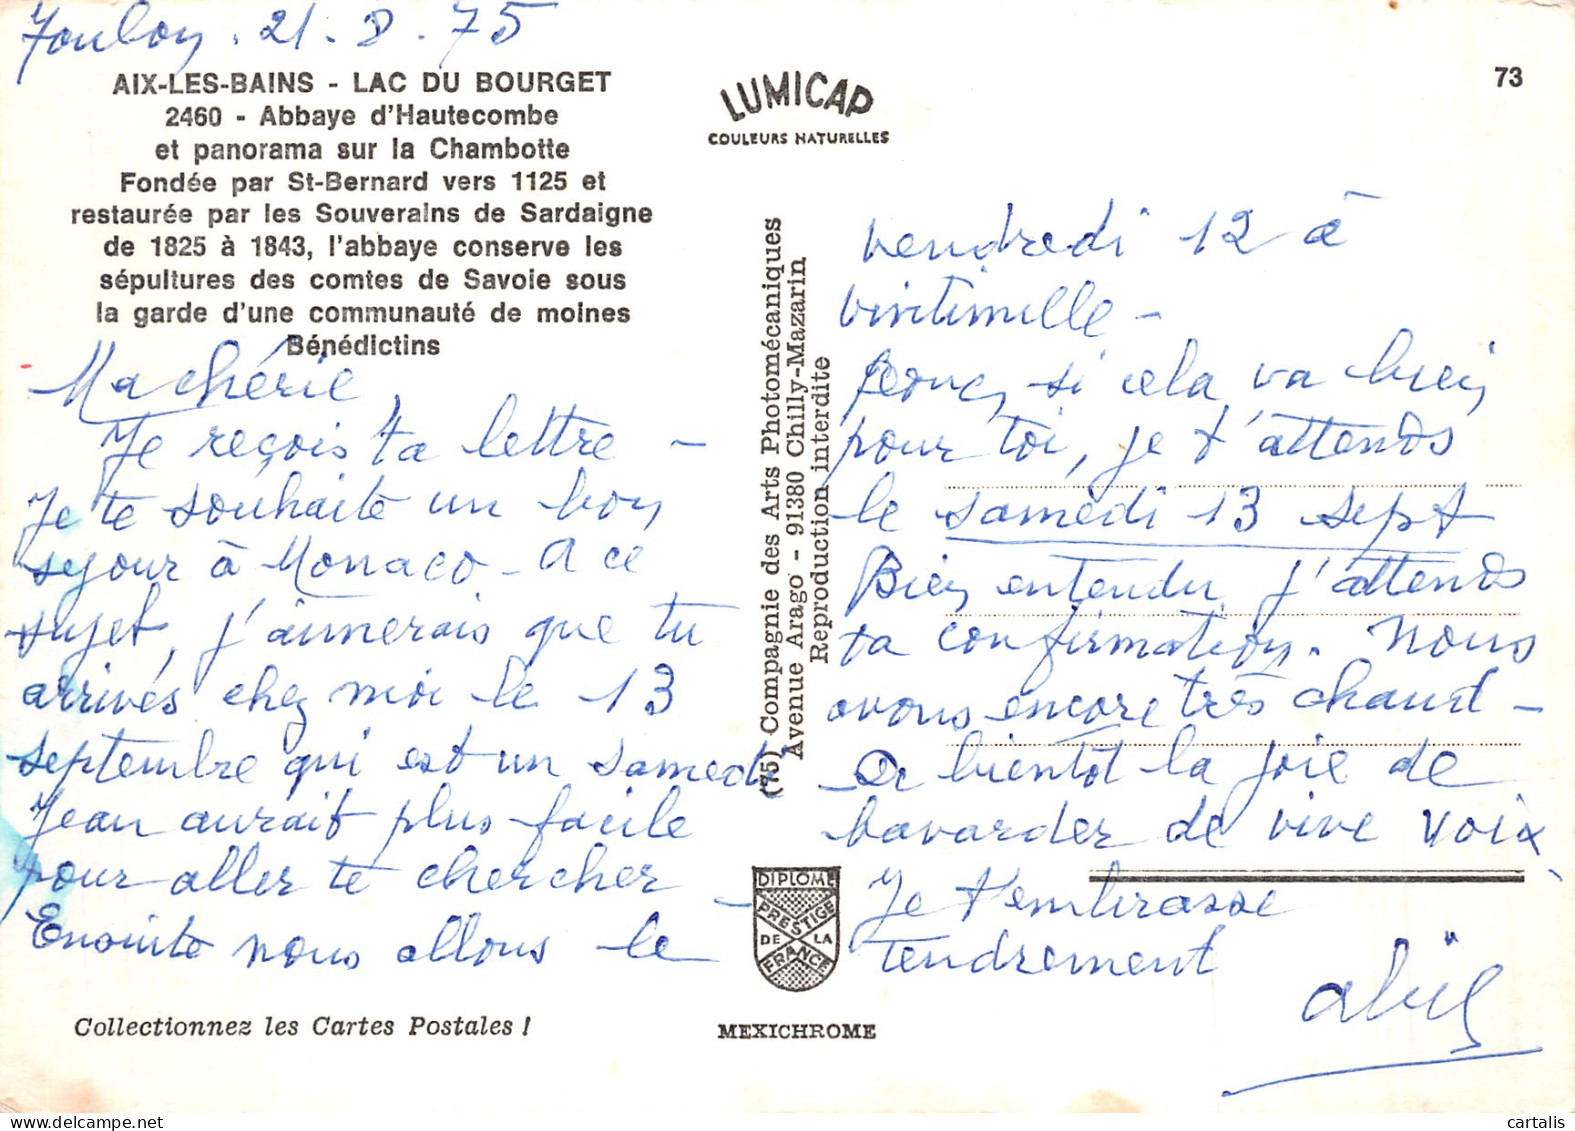 Toulon. 21. 8. 75
AIX-LES-BAINS - LAC DU BOURGET
2460 - Abbaye d'Hautecombe
et panorama sur la Chambotte
Fondée par St-Bernard vers 1125 et
restaurée par les Souverains de Sardaigne
de 1825 à 1843, l'abbaye conserve les
sépultures des comtes de Savoie sous
la garde d'une communauté de moines
Bénédictins
Ma chérie,
Je reçois ta lettre -
Je te souhaite un bon
sejour à Monaco - A ce
sujet, j'aimerais que tu
arrivés chez moi le 13
septembre qui est un samedi
Jean aurait plus facile
pour aller te chercher -
Ensuite nous allons le
Collectionnez les Cartes Postales !
LUMICAP
COULEURS NATURELLES
73
(75) Compagnie des Arts Photomécaniques
Avenue Arago - 91380 Chilly-Mazarin
Reproduction interdite
DIPLOME
PRESTIGE
DE LA
FRANCE
MEXICHROME
vendredi 12 à
vintimille -
Donc, si cela va bien
pour toi, je t'attends
le samedi 13 sept
Bien entendu j'attends
ta confirmation. Nous
avons encore très chaud -
A bientôt la joie de
bavarder de vive voix
Je t'embrasse
tendrement